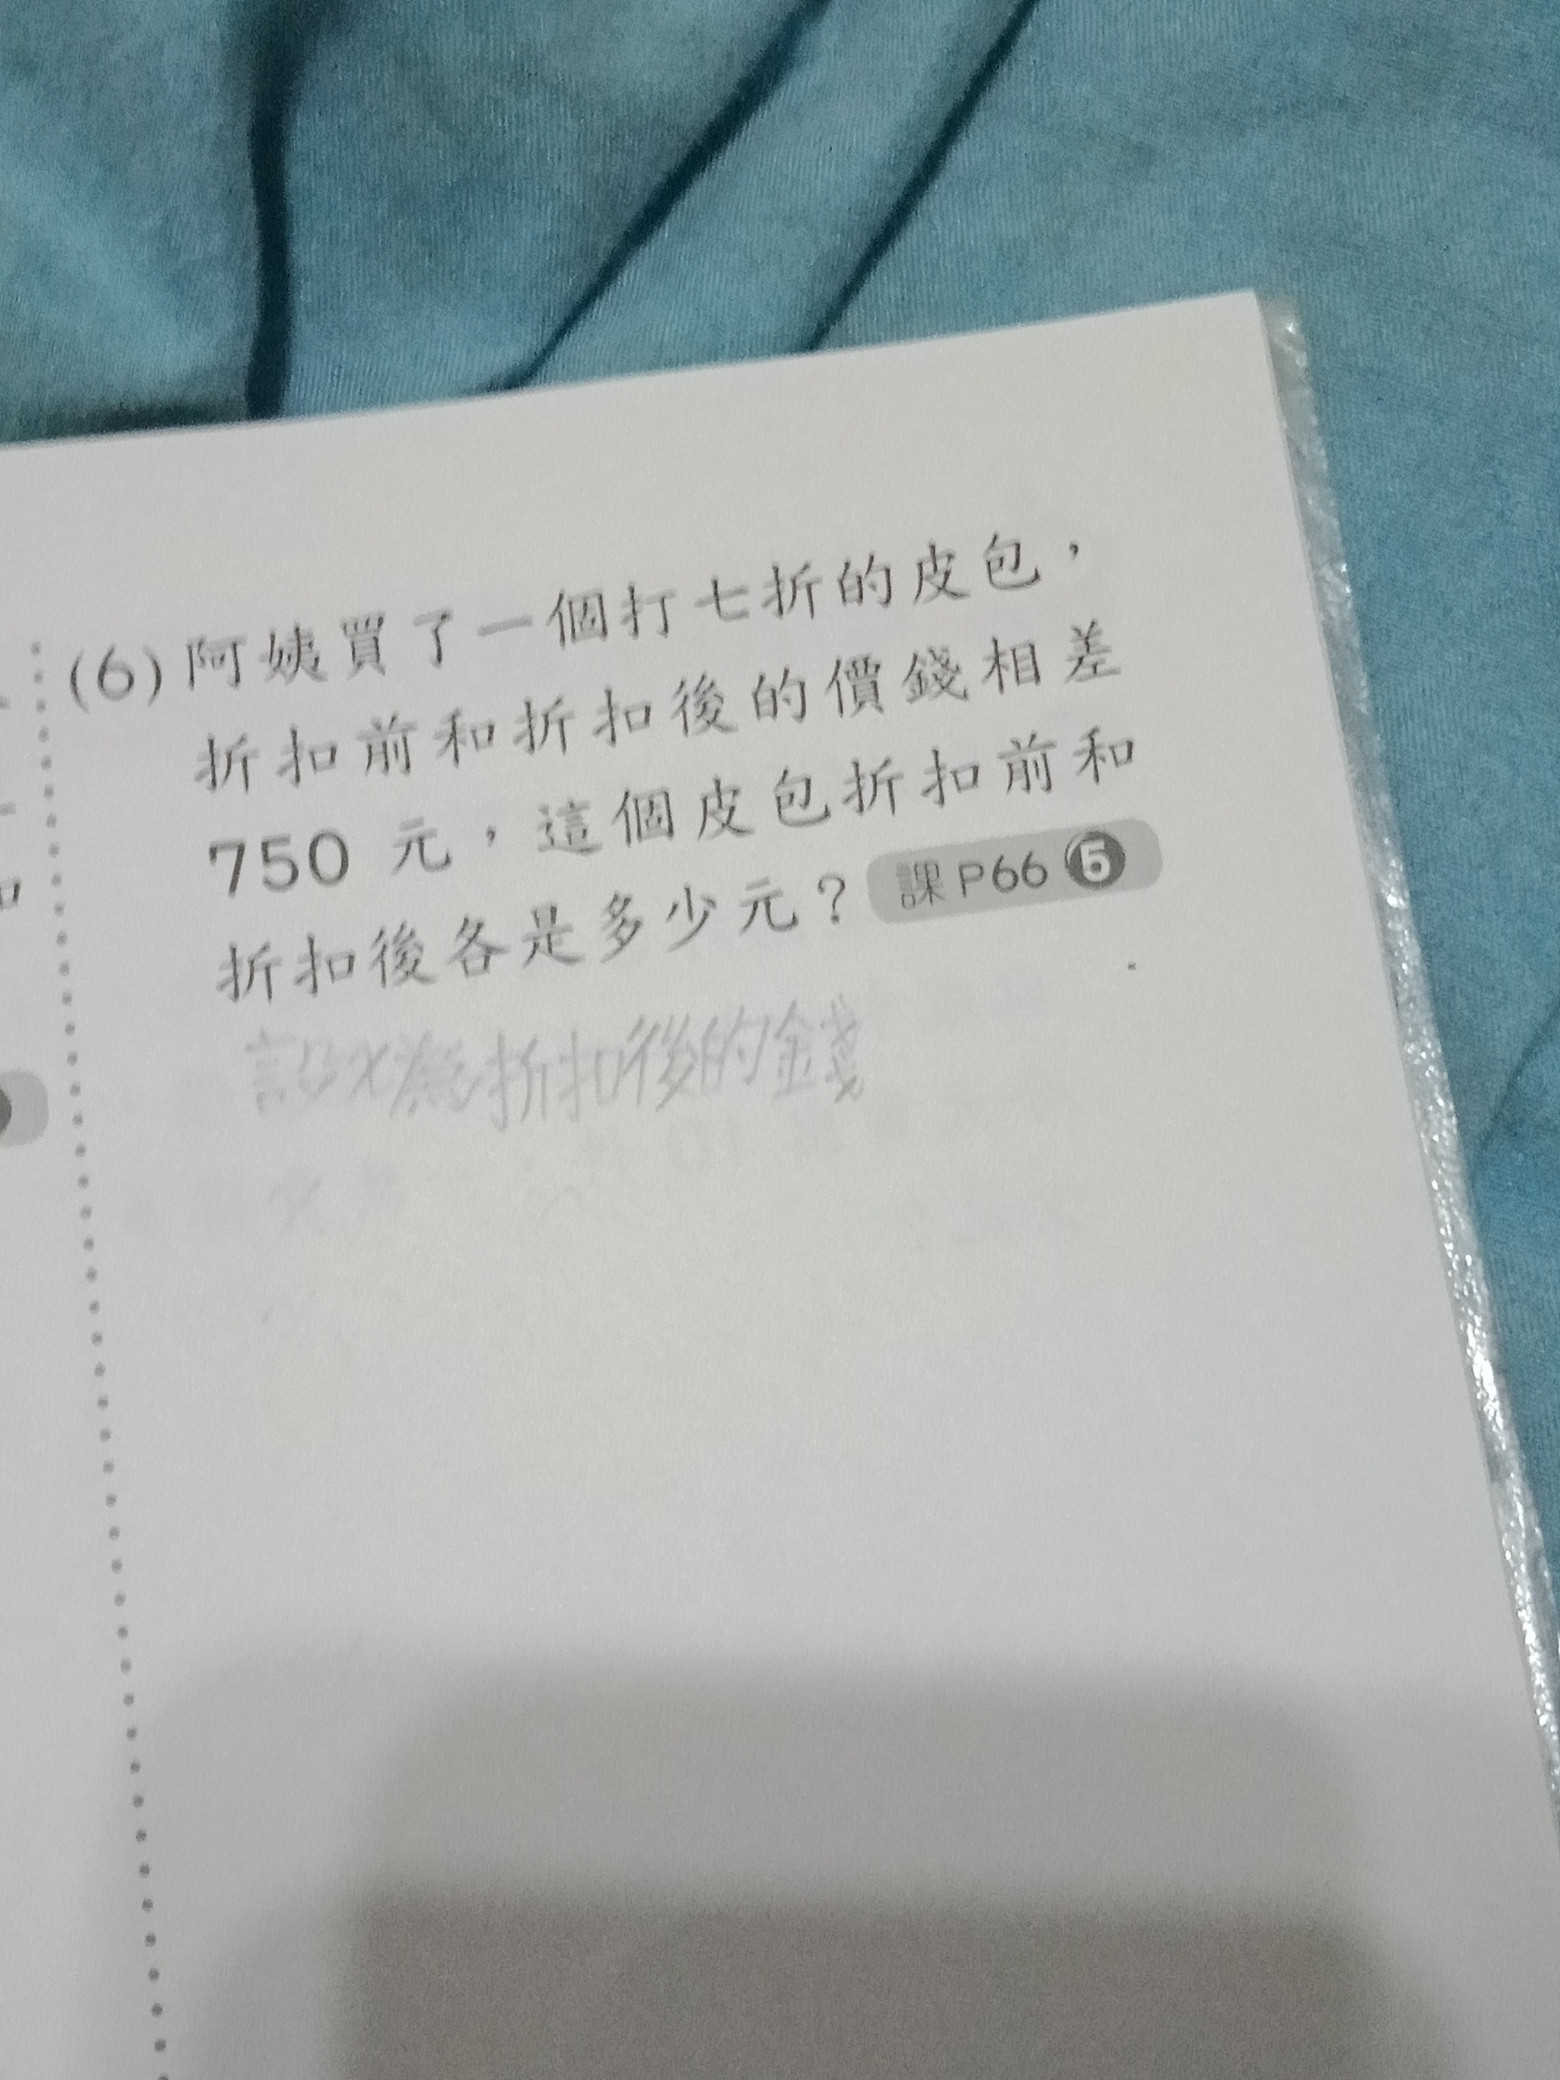 (6)阿姨買了一個打七折的皮包，
折扣前和折扣後的價錢相差
750 元，這個皮包折扣前和
折扣後各是多少元？ 課P66 5
設x為折扣後的錢